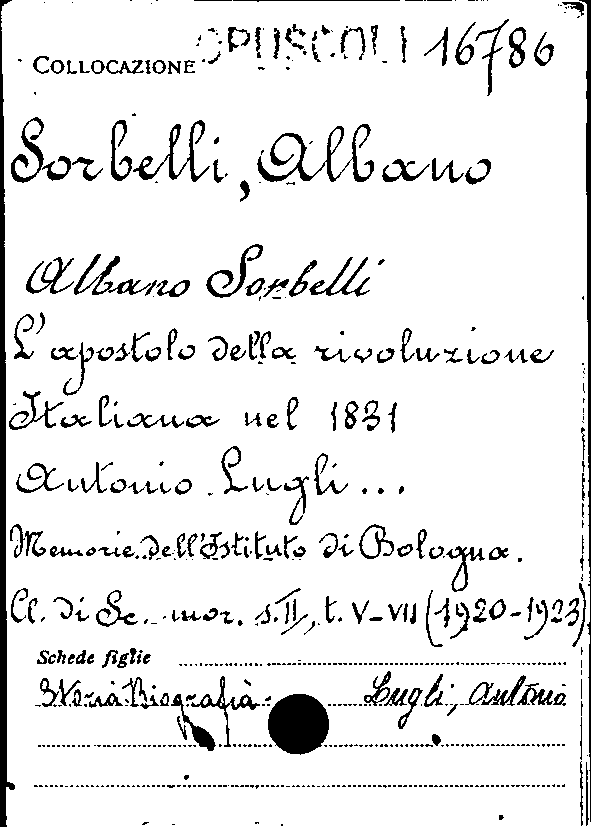 COLLOCAZIONE OPUSCOLI 16786
Sorbelli, Albano
Albano Sorbelli
L'apostolo della rivoluzione
Italiana nel 1831
Antonio Lugli...
Memorie dell'Istituto di Bologna.
Cl. di Sc. mor. s. II, t. V-VII (1920-1923)
Schede figlie
Storia Biografia Lugli, Antonio